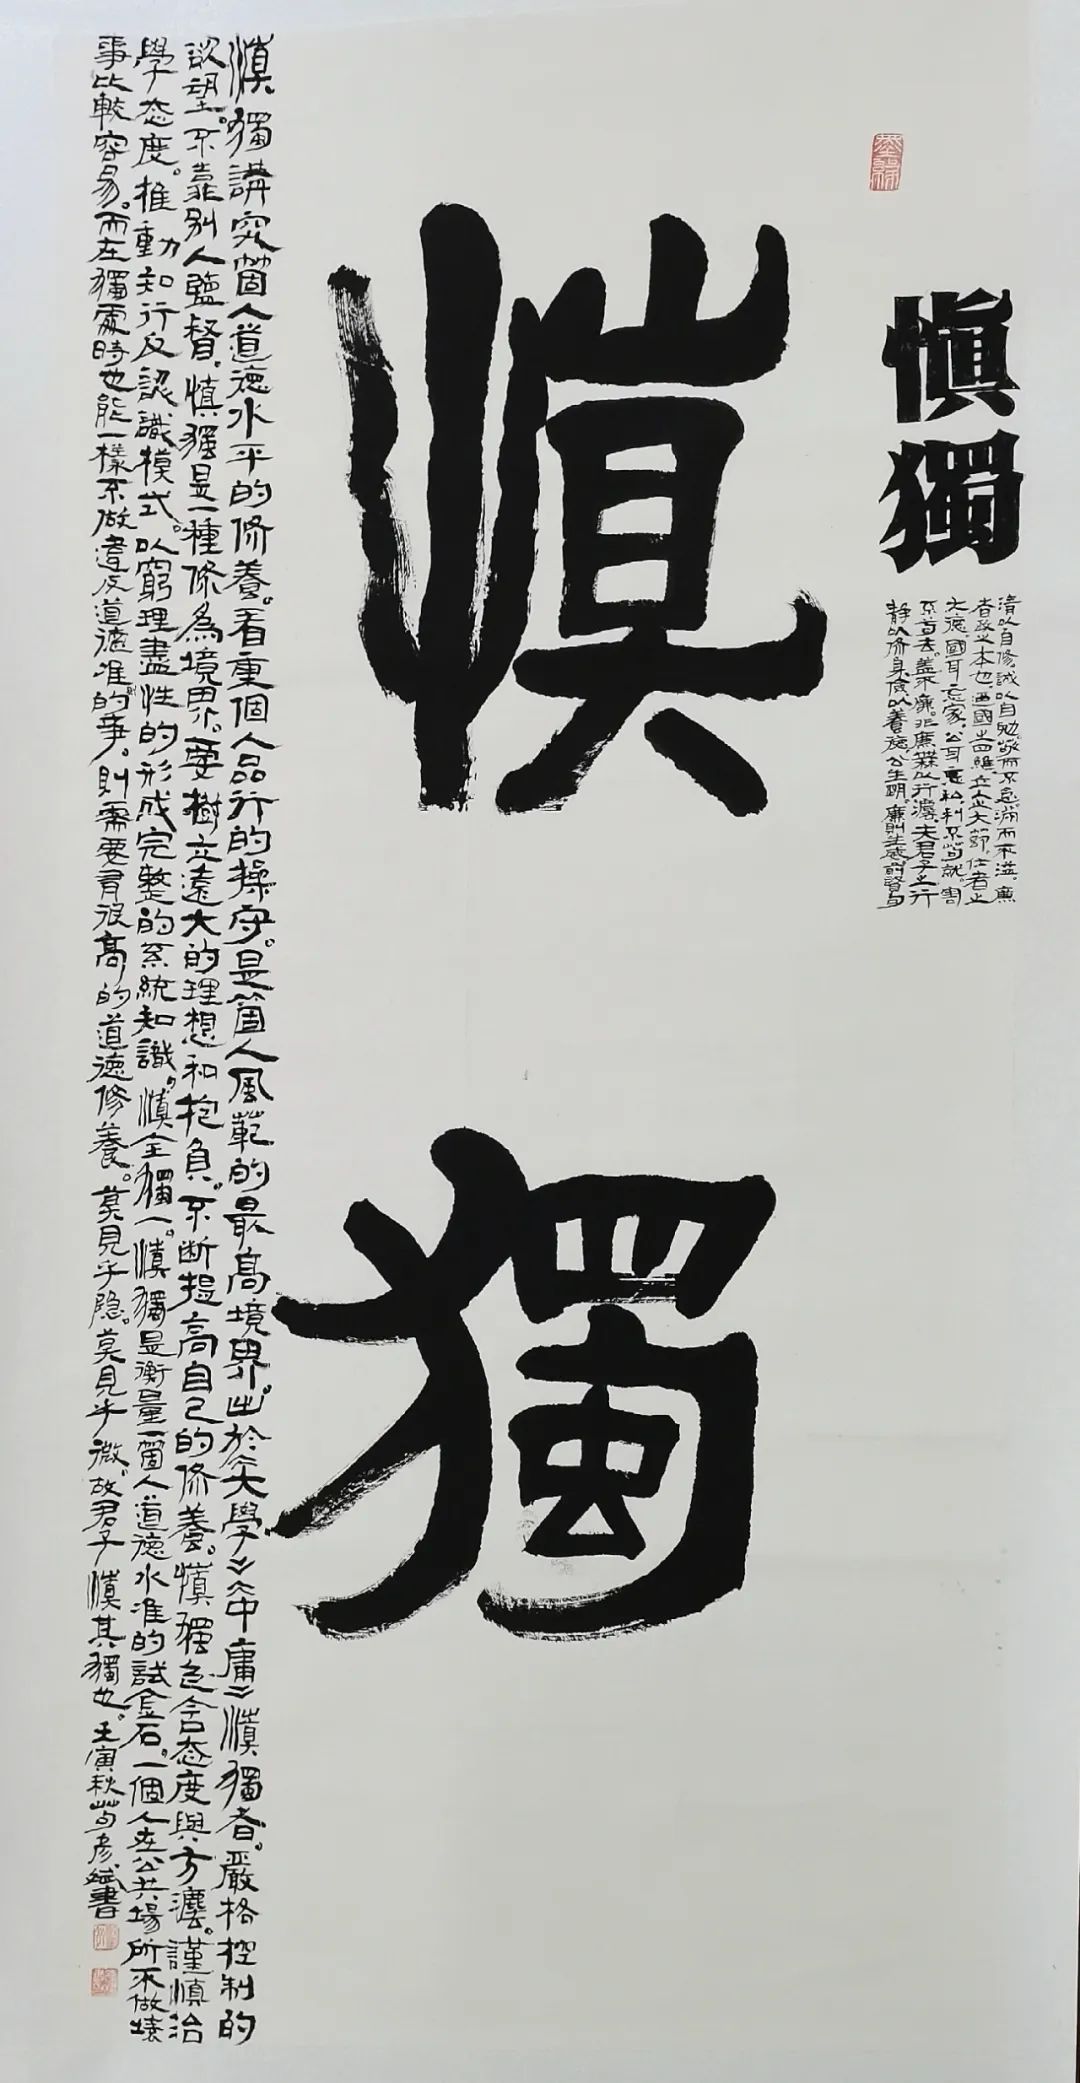 慎獨
清以自修。誠以自勉。敬而不怠。滿而不溢。廉
者政之本也。大節。仕者止
大德。國耳忘家。公耳忘私。利不苟就。害
不苟去。盖不廉。非廉無以行。夫君子之行
静以修身。儉以養德。公生明。廉則生威。前賢句
慎
獨
慎獨講究箇人道德水平的修養。看重個人品行的操守。是箇人風範的最高境界。出於《大學》《中庸》慎獨者。嚴格控制的
欲望。不靠别人監督。慎獨是一種修為境界。要樹立遠大的理想和抱負。不断提高自己的修養。慎獨包含态度與方灋。謹慎治
學态度。推動知行反認識模式。以窮理盡性的形成完整的系統知識。慎全獨一。慎獨是衡量一箇人道德水准的試金石。一個人在公共場所不做壞
事比較容易。而在獨處時也能一樣不做違反道德准則的事。則需要有很高的道德修養。莫見乎隐。莫見乎微。故君子慎其獨也。壬寅秋荀彦斌書